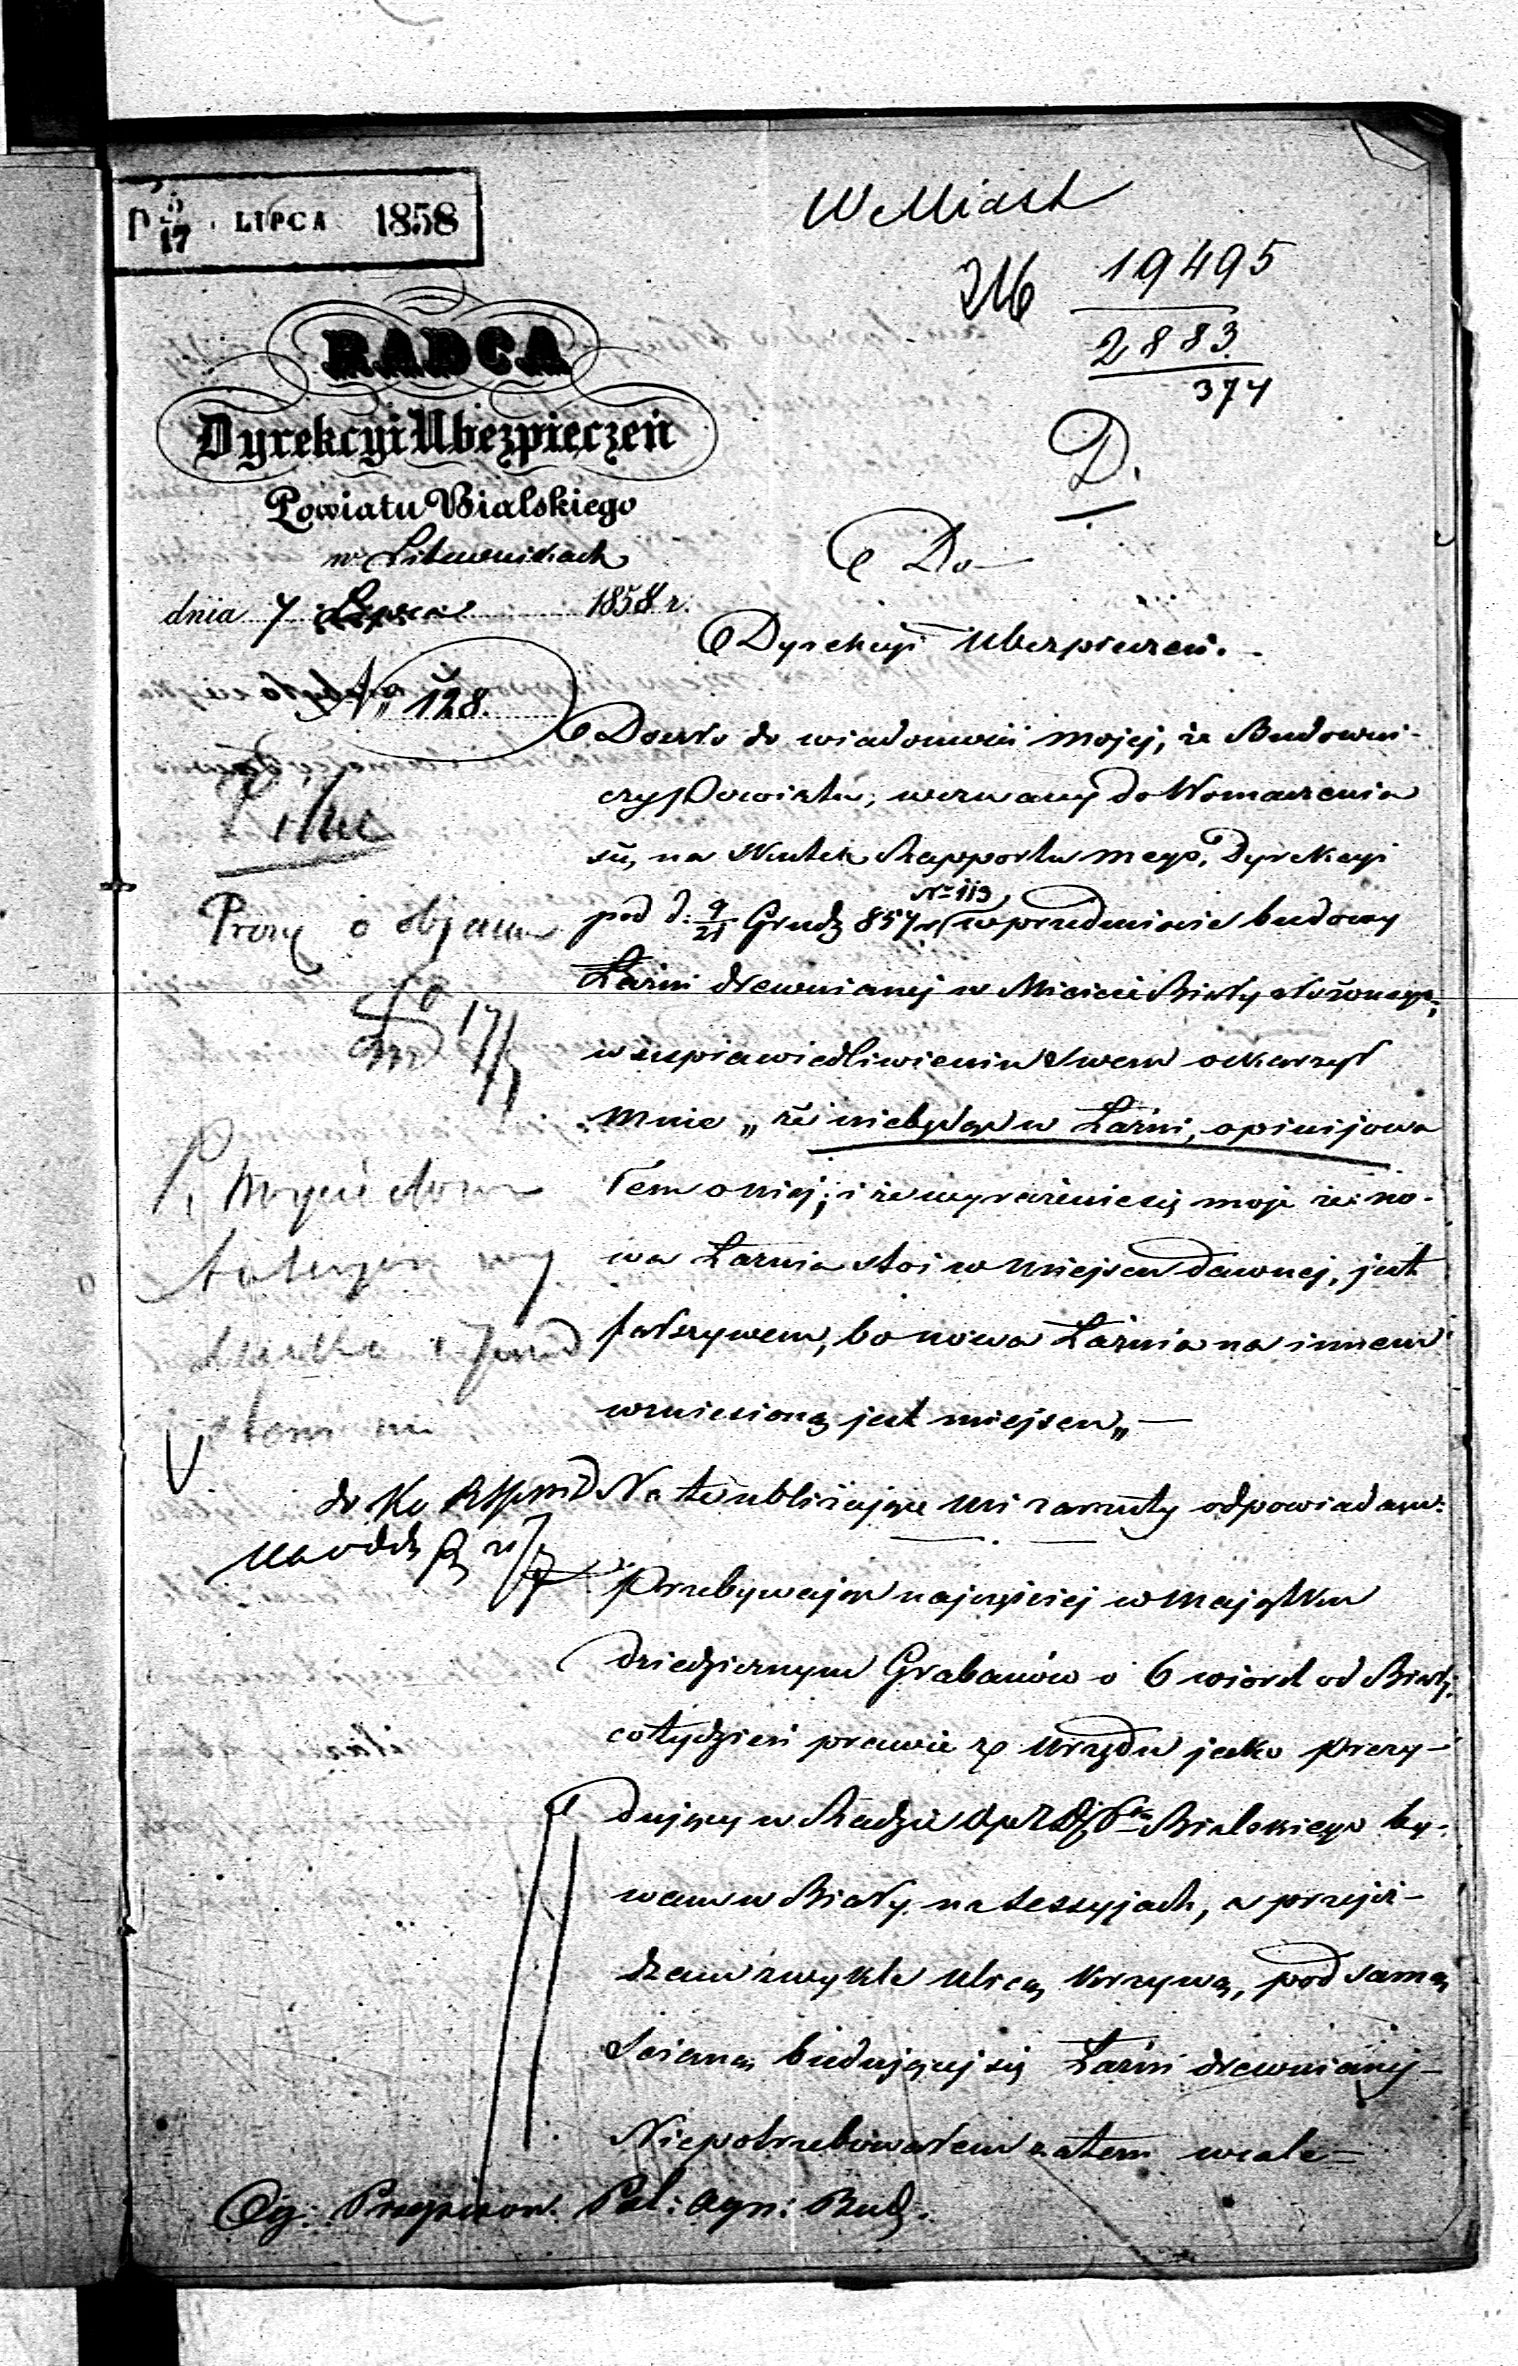 5/17 LIPCA 1858
W Miast
19495
2883
374
D.
RADCA
Dyrekcyi Ubezpieczeń
Powiatu Bialskiego
w Litewnikach
dnia 7 Lipca 1858 r.
N° 128.
Do
Dyrekcyi Ubezpieczeń.
Doszło do wiadomości mojej, że Budowni-
czy Powiatu, wezwany do tłomaczenia
się, na skutek Rapportu mego, Dyrekcyi
pod d. 9/21 Grudz 857 r. N° 113 w przedmiocie budowy
Łaźni drewnianej w Mieście Biały złożonego,
w usprawiedliwieniu swem oskarzył
mnie „że niebędąc w Łaźni, opinijowa
łem o niej; i że wyrażenie się moje że no-
wa Łaźnia stoi w miejscu dawnej, jest
fałszywem, bo nowa Łaźnia na innem
wzniesioną jest miejscu„ —
Na te ubliżające mi zarzuty odpowiadam:
Przebywając najczęściej w majątku
dziedzicznym Grabanów o 6 wiorst od Biały,
cotydzień prawie z urzędu jako Prezy-
dujący w Radzie Op. Bialskiego by-
wam w Biały na sessyjach, a przejeż-
dzam zwykle ulicą Krzywą, pod samą
ścianą budującej się Łaźni drewnianej —
Niepotrzebowałem zatem wcale —
Proszę o objaśn
17/7
do Ko
Og: Przepisow. Pol: Ogn: Bud.